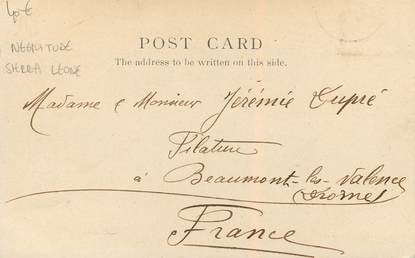 40€
NEGRITUDE
SIERRA LEONE
POST CARD
The address to be written on this side.
Madame & Monsieur Jérémie Dupré
Filature
à Beaumont-les-Valence
(Drôme)
France